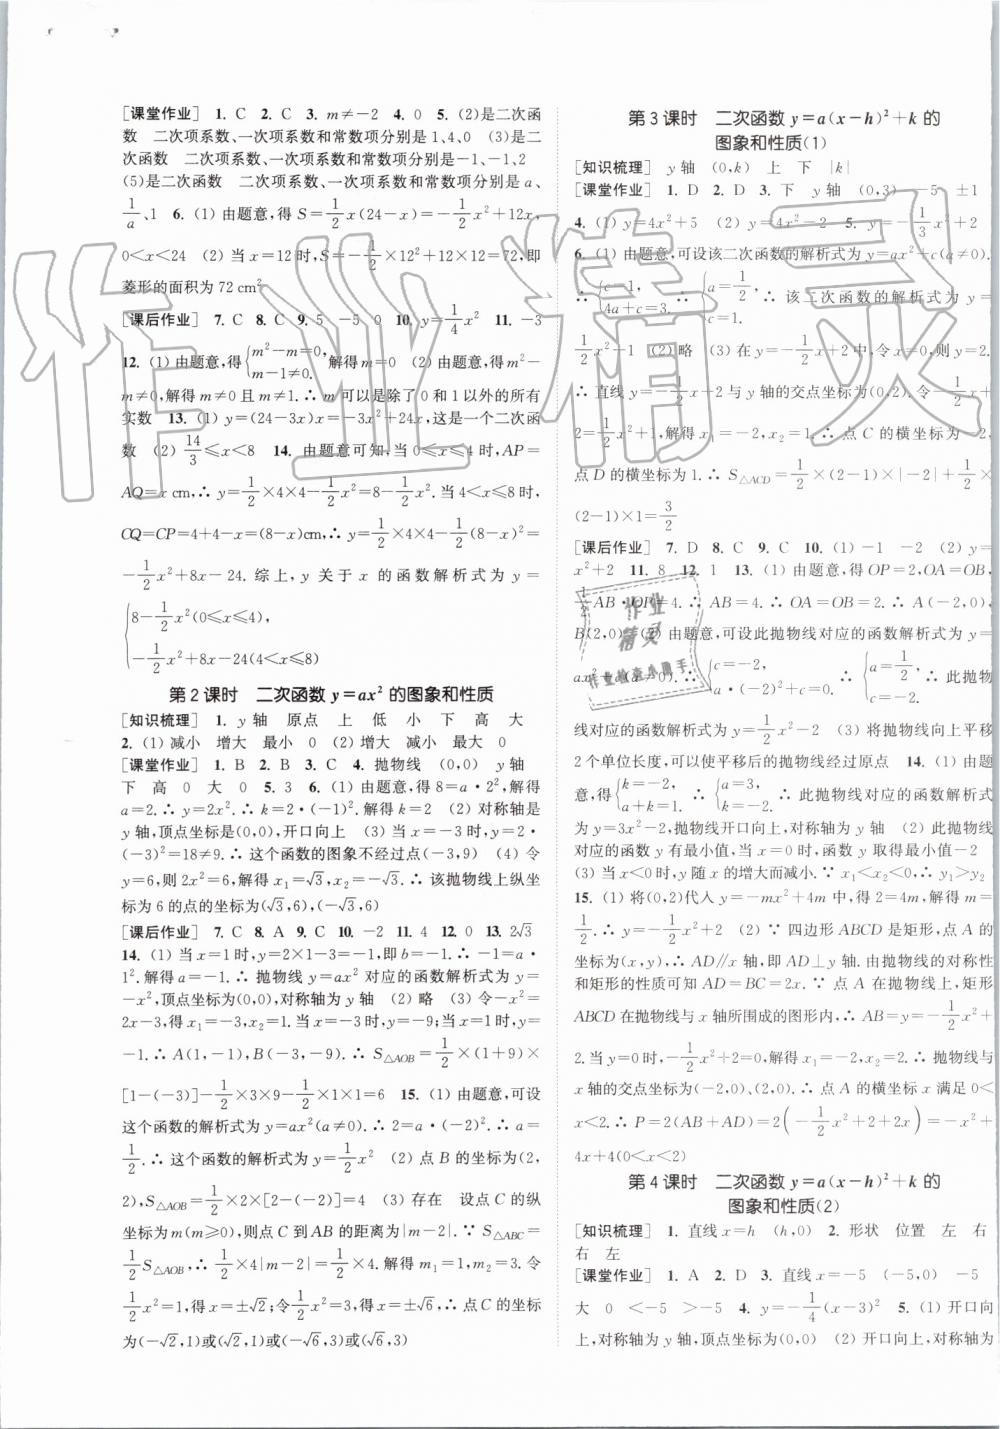 [课堂作业] 1. C 2. C 3. m≠-2 4. 0 5. (2)是二次函
数 二次项系数、一次项系数和常数项分别是1,4,0 (3)是二
次函数 二次项系数、一次项系数和常数项分别是-1,-1,2
(5)是二次函数 二次项系数、一次项系数和常数项分别是a、
1/a、1 6. (1) 由题意,得 S=1/2x(24-x)=-1/2x²+12x,
0<x<24 (2) 当 x=12 时,S=-1/2×12²+12×12=72,即
菱形的面积为 72 cm²
[课后作业] 7. C 8. C 9. 5 -5 0 10. y=1/4x² 11. -3
12. (1) 由题意,得{m²-m=0, m-1≠0. 解得 m=0 (2) 由题意,得 m²-
m≠0,解得 m≠0 且 m≠1.∴ m 可以是除了0 和 1 以外的所有
实数 13. (1) y=(24-3x)x=-3x²+24x,这是一个二次函
数 (2) 14/3≤x<8 14. 由题意可知,当 0≤x≤4 时,AP=
AQ=x cm,∴ y=1/2×4×4-1/2x²=8-1/2x². 当 4<x≤8 时,
CQ=CP=4+4-x=(8-x)cm,∴ y=1/2×4×4-1/2(8-x)²=
-1/2x²+8x-24. 综上,y 关于 x 的函数解析式为 y=
{8-1/2x²(0≤x≤4),
-1/2x²+8x-24(4<x≤8)
第 2 课时 二次函数 y=ax² 的图象和性质
[知识梳理] 1. y 轴 原点 上 低 小 下 高 大
2. (1) 减小 增大 最小 0 (2) 增大 减小 最大 0
[课堂作业] 1. B 2. B 3. C 4. 抛物线 (0,0) y轴
下 高 0 大 0 5. 3 6. (1) 由题意,得 8=a·2²,解得
a=2.∴ y=2x².∴ k=2·(-1)².解得 k=2 (2) 对称轴是
y 轴,顶点坐标是(0,0),开口向上 (3) 当 x=-3 时,y=2·
(-3)²=18≠9.∴ 这个函数的图象不经过点(-3,9) (4) 令
y=6,则 2x²=6,解得 x₁=√3,x₂=-√3.∴ 该抛物线上纵坐
标为 6 的点的坐标为(√3,6),(-√3,6)
[课后作业] 7. C 8. A 9. C 10. -2 11. 4 12. 0 13. 2√3
14. (1) 当 x=1 时,y=2×1-3=-1,即 b=-1.∴ -1=a·
1².解得 a=-1.∴ 抛物线 y=ax² 对应的函数解析式为 y=
-x²,顶点坐标为(0,0),对称轴为 y 轴 (2) 略 (3) 令-x²=
2x-3,得 x₁=-3,x₂=1.当 x=-3 时,y=-9;当 x=1时,y=
-1.∴ A(1,-1),B(-3,-9).∴ S△AOB=1/2×(1+9)×
[1-(-3)]-1/2×3×9-1/2×1×1=6 15. (1) 由题意,可设
这个函数的解析式为 y=ax²(a≠0).∴ 2=a·(-2)².∴ a=
1/2.∴ 这个函数的解析式为 y=1/2x² (2) 点 B 的坐标为(2,
2),S△AOB=1/2×2×[2-(-2)]=4 (3) 存在 设点 C 的纵
坐标为 m(m≥0),则点 C 到 AB 的距离为|m-2|.∵ S△ABC=
1/2S△AOB,∴ 1/2×4|m-2|=1/2×4.解得 m₁=1,m₂=3. 令
1/2x²=1,得 x=±√2;令1/2x²=3,得 x=±√6,∴ 点 C 的坐标
为(-√2,1)或(√2,1)或(-√6,3)或(√6,3)
第 3 课时 二次函数 y=a(x-h)²+k 的
图象和性质(1)
[知识梳理] y 轴 (0,k) 上 下 |k|
[课堂作业] 1. D 2. D 3. 下 y轴 (0,3) -5 ±1
4. (1) y=4x²+5 (2) y=4x²-2 5. y=-1/3x²+2
6. (1) 由题意,可设该二次函数的解析式为 y=ax²+c(a≠0).
∴ {c=1, 4a+c=3. ∴ {a=1/2, c=1. ∴ 该二次函数的解析式为 y=
1/2x²+1 (2) 略 (3) 在 y=-x+2中,令 x=0,则 y=2.
∴ 直线 y=-x+2 与 y 轴的交点坐标为(0,2). 令-x+
2=1/2x²+1,解得 x₁=-2,x₂=1.∴ 点 C 的横坐标为-2,
点 D 的横坐标为 1.∴ S△ACD=1/2×(2-1)×|-2|+1/2×
(2-1)×1=3/2
[课后作业] 7. D 8. C 9. C 10. (1) -1 -2 (2) y=
x²+2 11. 8 12. 1 13. (1) 由题意,得 OP=2,OA=OB,
1/2AB·OP=4.∴ AB=4.∴ OA=OB=2.∴ A(-2,0),
B(2,0) (2) 由题意,可设此抛物线对应的函数解析式为 y=
ax²+c(a≠0).∴ {c=-2, a·(-2)²+c=0. ∴ {a=1/2, c=-2. ∴ 此抛物
线对应的函数解析式为 y=1/2x²-2 (3) 将抛物线向上平移
2 个单位长度,可以使平移后的抛物线经过原点 14. (1) 由题
意,得{k=-2, a+k=1. ∴ {a=3, k=-2. ∴ 此抛物线对应的函数解析式
为 y=3x²-2,抛物线开口向上,对称轴为 y轴 (2) 此抛物线
对应的函数 y 有最小值,当 x=0 时,函数 y 取得最小值-2
(3) 当 x<0 时,y 随 x 的增大而减小.∵ x₁<x₂<0,∴ y₁>y₂
15. (1) 将(0,2)代入 y=-mx²+4m 中,得 2=4m,解得 m=
1/2.∴ y=-1/2x²+2 (2) ∵ 四边形 ABCD 是矩形,点 A 的
坐标为(x,y),∴ AD∥x 轴,即 AD⊥y 轴. 由抛物线的对称性
和矩形的性质可知 AD=BC=2x.∵ 点 A 在抛物线上,矩形
ABCD 在抛物线与 x 轴所围成的图形内,∴ AB=y=-1/2x²+
2. 当 y=0 时,-1/2x²+2=0,解得 x₁=-2,x₂=2.∴ 抛物线与
x 轴的交点坐标为(-2,0),(2,0).∴ 点 A 的横坐标 x 满足 0<
x<2.∴ P=2(AB+AD)=2(-1/2x²+2+2x)=-x²+
4x+4(0<x<2)
第 4 课时 二次函数 y=a(x-h)²+k 的
图象和性质(2)
[知识梳理] 1. 直线 x=h (h,0) 2. 形状 位置 左 右
右 左
[课堂作业] 1. A 2. D 3. 直线 x=-5 (-5,0) -5
大 0 <-5 >-5 4. y=-1/4(x-3)² 5. (1) 开口向
上,对称轴为 y 轴,顶点坐标为(0,0) (2) 开口向上,对称轴为
作业精灵
作业
精灵
作业检查小助手